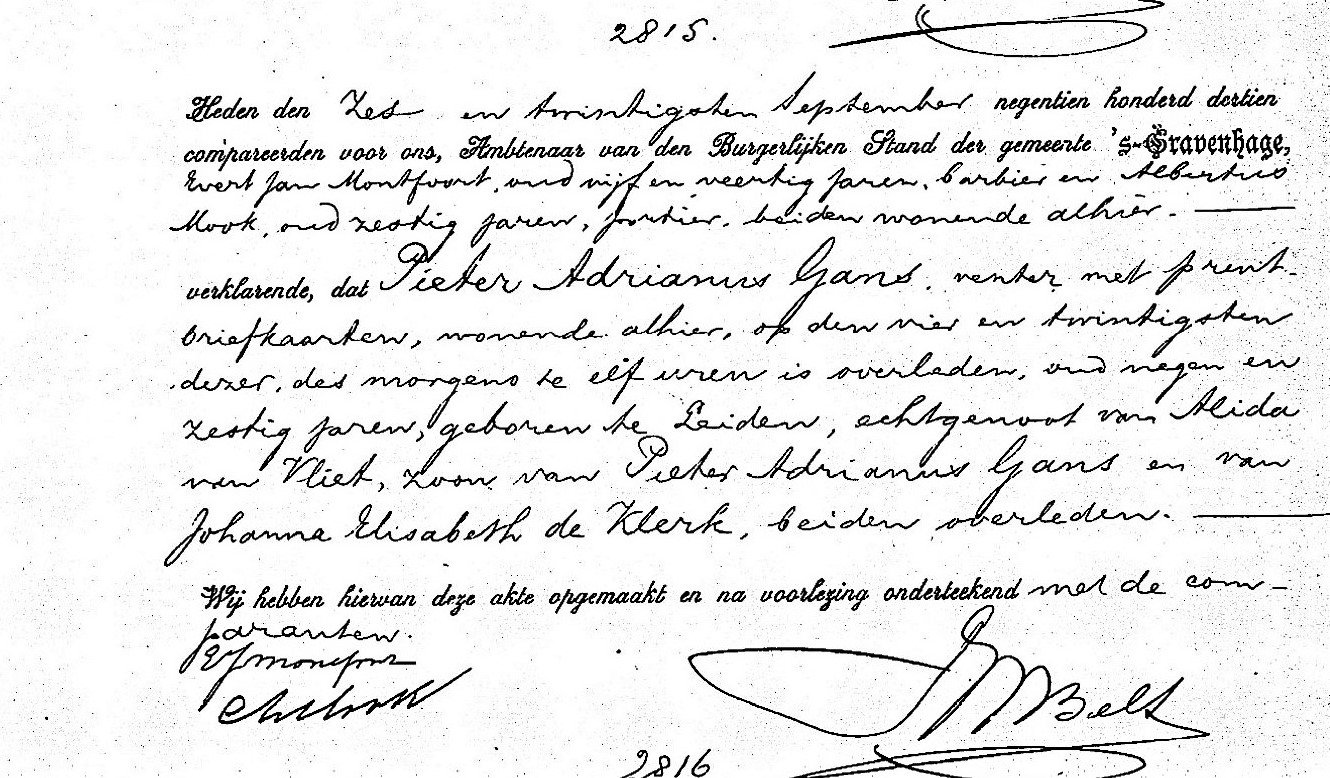 2815.
Heden den Zes en twintigsten September negentien honderd dertien
compareerden voor ons, Ambtenaar van den Burgerlijken Stand der gemeente 's-Gravenhage,
Evert Jan Montfoort, oud vijf en veertig jaren, barbier en Albertus
Mook, oud zestig jaren, portier, beiden wonende alhier.
verklarende, dat Pieter Adrianus Gans, venter met prent-
briefkaarten, wonende alhier, op den vier en twintigsten
dezer, des morgens te elf uren is overleden, oud negen en
zestig jaren, geboren te Leiden, echtgenoot van Alida
van Vliet, zoon van Pieter Adrianus Gans en van
Johanna Elisabeth de Klerk, beiden overleden.
Wij hebben hiervan deze akte opgemaakt en na voorlezing onderteekend met de com-
paranten.
2816